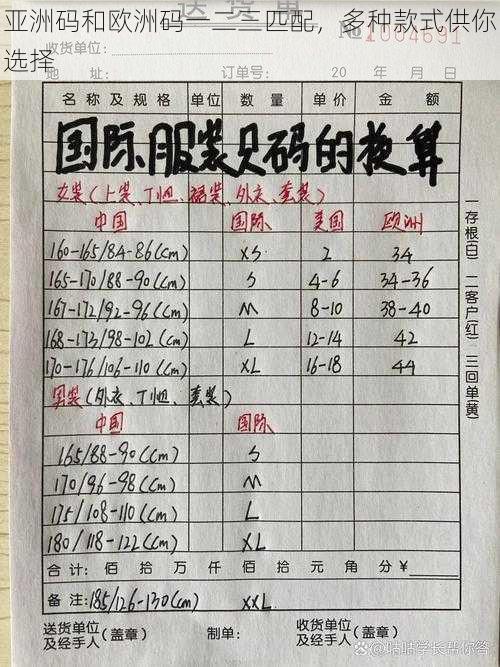 亚洲码和欧洲码一二三匹配，多种款式供你选择
送货单
№ 1004691
收货单位：
地址： 订单号： 20 年 月 日
名称及规格 单位 数量 单价 金额
国际服装尺码的换算
女装(上装、T恤、裙装、外衣、套装)
中国 国际 美国 欧洲
160-165/84-86(cm) XS 2 34
165-170/88-90(cm) S 4-6 34-36
167-172/92-96(cm) M 8-10 38-40
168-173/98-102(cm) L 12-14 42
170-176/106-110(cm) XL 16-18 44
男装(外衣、T恤、套装)
中国 国际
165/88-90(cm) S
170/96-98(cm) M
175/108-110(cm) L
180/118-122(cm) XL
合计： 佰 拾 万 仟 佰 拾 元 角 分 ¥
备注：185/126-130(cm) XXL
送货单位及经手人(盖章) 制单： 收货单位及经手人(盖章)
一存根(白) 二客户(红) 三回单(黄)
咕咕学长帮你答